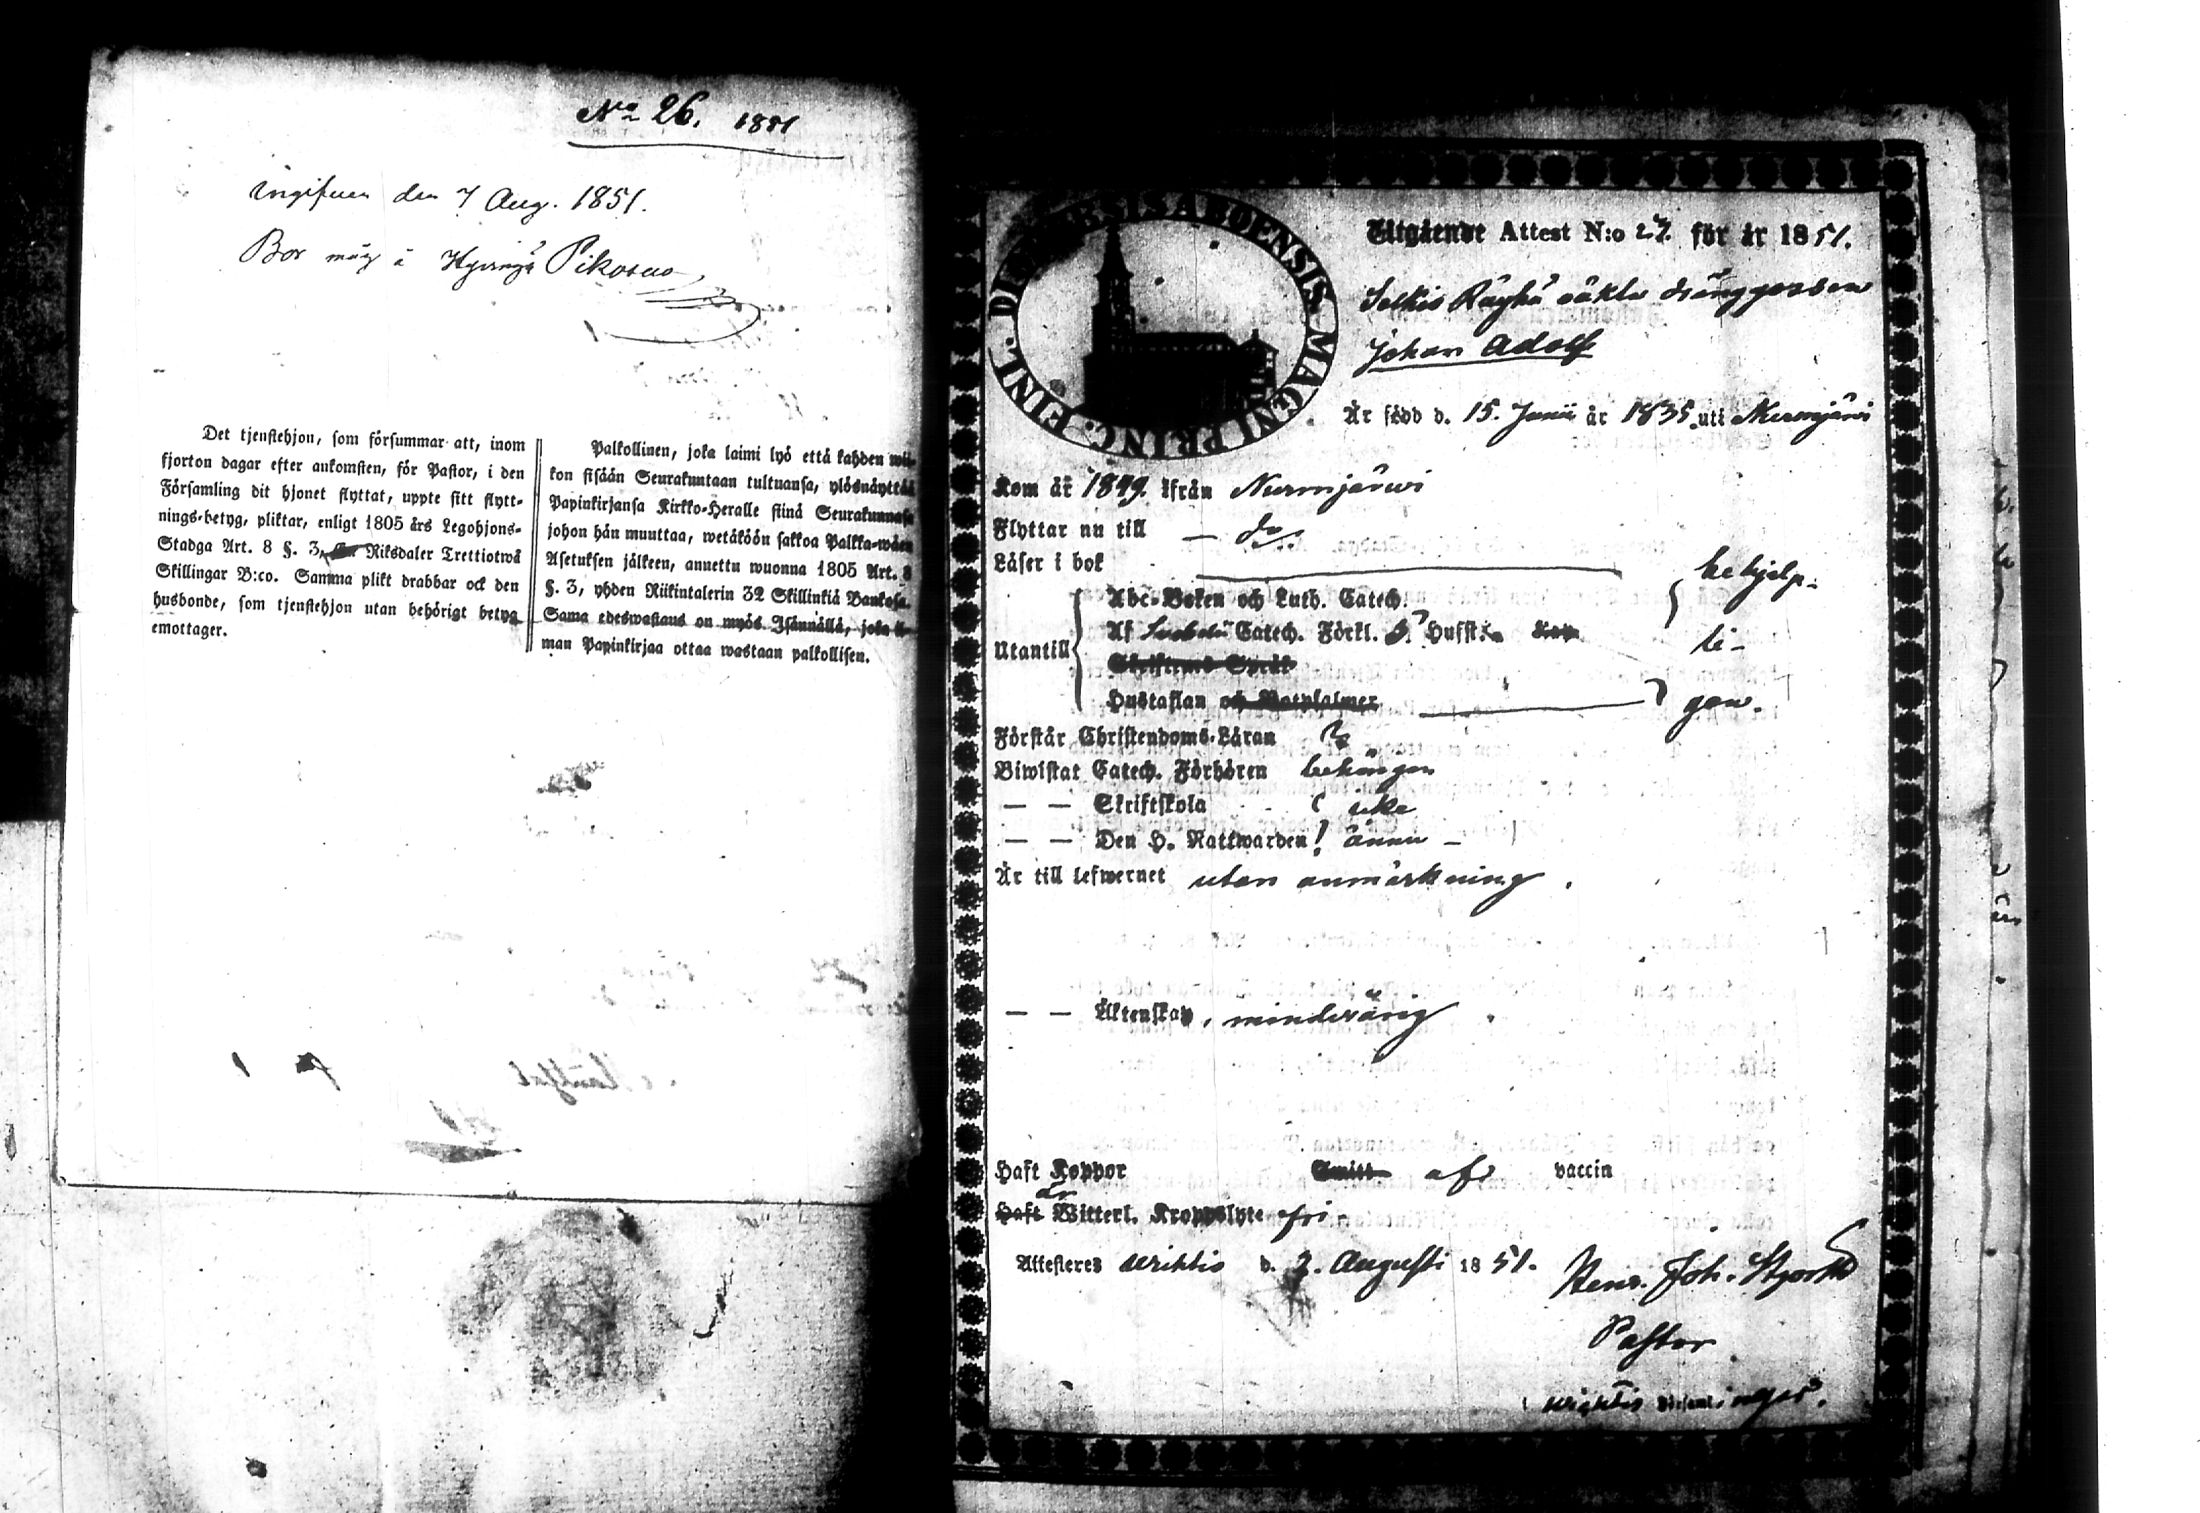 No 26. 1851
Ingifven den 7 Aug. 1851.
Bor måg å Hyvingä Pikosuo
Det tjenstehjon, som försummar att, inom
fjorton dagar efter ankomsten, för Pastor, i den
Församling dit hjonet flyttat, uppte sitt flytt-
nings-betyg, pliktar, enligt 1805 års Legohjons-
Stadga Art. 8 §. 3, Riksdaler Trettiotwå
Skillingar B:co. Samma plikt drabbar ock den
husbonde, som tjenstehjon utan behörigt betyg
emottager.
Palkollinen, joka laimi lyö että kahden wii-
kon sisään Seurakuntaan tultuansa, ylösnäyttää
Papinkirjansa Kirkko-Heralle siinä Seurakunnasa
johon hän muuttaa, wetäköön sakkoa Palkka-wäen
Asetuksen jälkeen, annettu wuonna 1805 Art. 8
§. 3, yhden Riikintalerin 32 Skillinkiä Bankosa.
Sama edeswastaus on myös Isännällä, joka il-
man Papinkirjaa ottaa wastaan palkollisen.
FINL. DIOECESIS ABOENSIS MAGNI PRINC.
Utgående Attest N:o 27. för år 1851.
Selkis Räyhä oäkta dränggossen
Johan Adolf
Är född d. 15. Junii år 1835. uti Nurmijärvi
Kom år 1849. ifrån Nurmijärwi
Flyttar nu till — do.
Läser i bok
Abc-Boken och Luth. Catech. behjelp-
Utantill Af Svebelii Catech. Förkl. 3. Husst. li-
Skriftenes Språk
Hustaflan och Botpsalmer gen.
Förstår Christendoms-Läran
Biwistat Catech. Förhören behörigen
— — Skriftskola icke
— — Den H. Nattwarden ännu —
Är till lefwernet utan anmärkning.
— — Äktenskap, minderårig.
Haft Koppor Smitt af vaccin
är
Haft Witterl. Kroppslyte fri.
Attesteres Wichtis d. 2. Augusti 1851. Henr. Joh.
Pastor
i Wichtis Församlingar.